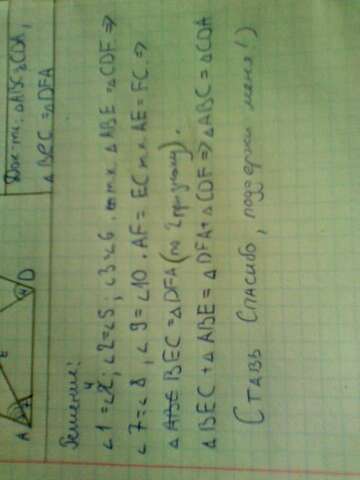 Док-ть: △ABC = △CDA,
△BEC = △DFA
A
D
E
Решение:
∠1=∠4; ∠2=∠5; ∠3=∠6, т.к. △ABE = △CDF ⇒
∠7=∠8, ∠9=∠10. AF=EC т.к. AE=FC. ⇒
△BEC = △DFA (по 2 признаку).
△BEC + △ABE = △DFA + △CDF ⇒ △ABC = △CDA
Ставь Спасибо, поддержи меня!)